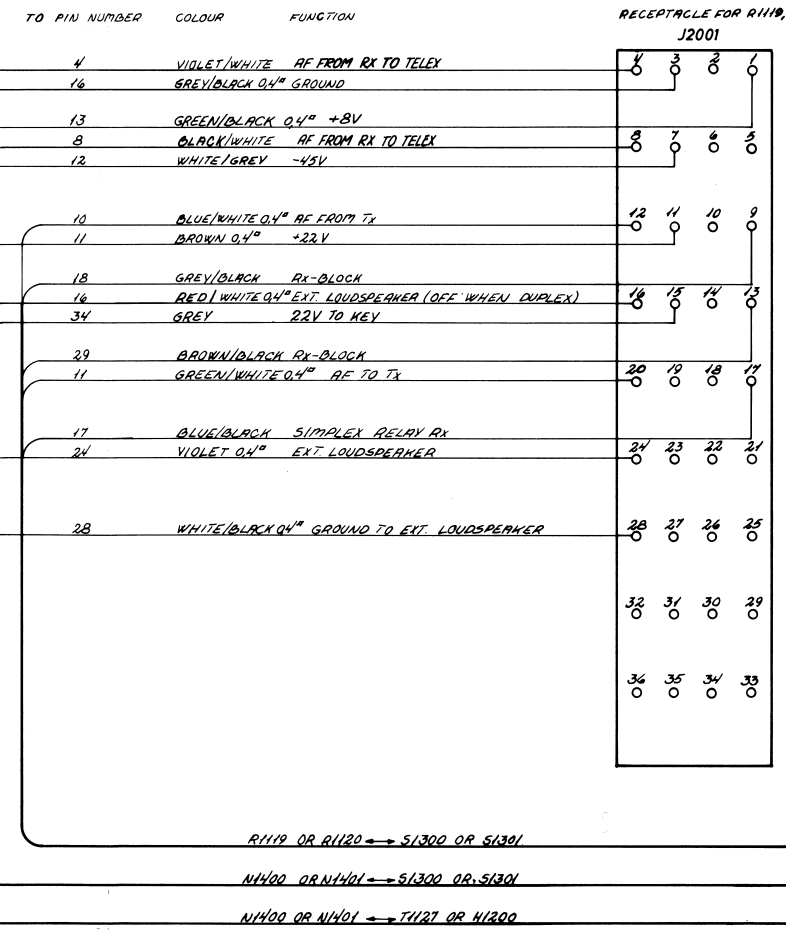 TO PIN NUMBER COLOUR FUNCTION RECEPTACLE FOR R1119,
J2001
4 VIOLET/WHITE AF FROM RX TO TELEX 4 3 2 1
16 GREY/BLACK 0,4▫ GROUND
13 GREEN/BLACK 0,4▫ +8V
8 BLACK/WHITE AF FROM RX TO TELEX 8 7 6 5
12 WHITE/GREY -45V
10 BLUE/WHITE 0,4▫ AF FROM Tx 12 11 10 9
11 BROWN 0,4▫ +22V
18 GREY/BLACK Rx-BLOCK
16 RED/WHITE 0,4▫ EXT. LOUDSPEAKER (OFF WHEN DUPLEX) 16 15 14 13
34 GREY 22V TO KEY
29 BROWN/BLACK Rx-BLOCK
11 GREEN/WHITE 0,4▫ AF TO Tx 20 19 18 17
17 BLUE/BLACK SIMPLEX RELAY Rx
24 VIOLET 0,4▫ EXT. LOUDSPEAKER 24 23 22 21
28 WHITE/BLACK 0,4▫ GROUND TO EXT. LOUDSPEAKER 28 27 26 25
32 31 30 29
36 35 34 33
R1119 OR R1120 ↔ S1300 OR S1301.
N1400 OR N1401 ↔ S1300 OR S1301
N1400 OR N1401 ↔ T1127 OR H1200